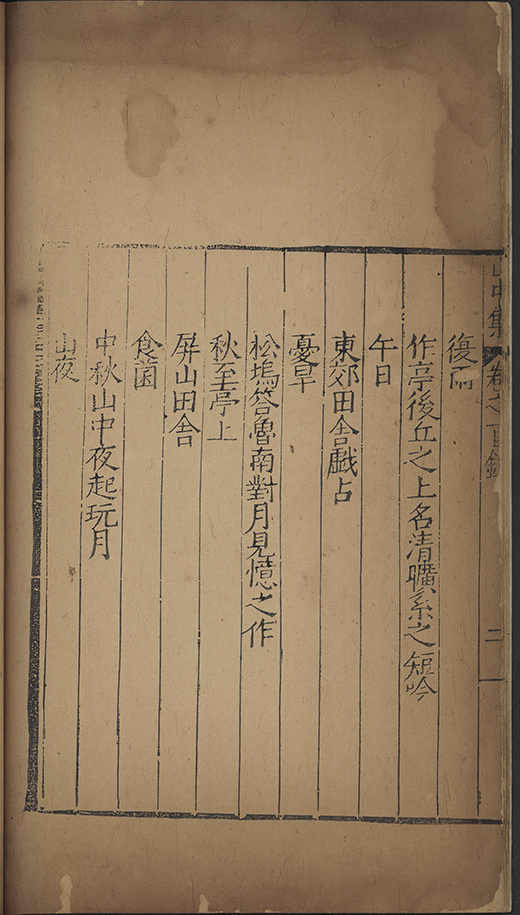 山中集 卷之一目錄 二
復雨
作亭後丘之上名清曠系之短吟
午日
東郊田舍戲占
憂旱
松塢答魯南對月見憶之作
秋至亭上
屏山田舍
食菌
中秋山中夜起玩月
山夜